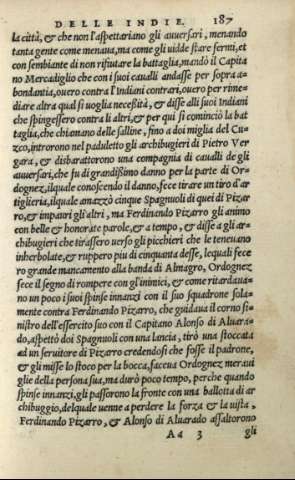 DELLE INDIE. 187
la città, & che non l'aspettariano gli auuersari, menando
tanta gente come menaua, ma come gli uidde stare fermi, et
con sembiante di non rifiutare la battaglia, mandò il Capita
no Mercadiglio che con i suoi caualli andasse per sopra a-
bondantia, ouero contra l'Indiani contrari, ouero per rime-
diare altra qual si uoglia necessità, & disse alli suoi Indiani
che spingessero contra li altri, & per qui si cominciò la bat
taglia, che chiamano delle salline, fino a doi miglia del Cu-
zco, introrono nel paduletto gli archibugieri di Pietro Ver
gara, & disbarattorono una compagnia di caualli de gli
auuersari, che fu di grandißimo danno per la parte di Or-
dognez, il quale conoscendo il danno, fece tirare un tiro d'ar
tiglieria, il quale amazzò cinque Spagnuoli di quei di Pizar
ro, & impaurì gli altri, ma Ferdinando Pizarro gli animo
con belle & honorate parole, & a tempo, & disse a gli ar-
chibugieri che tirassero uerso gli picchieri che le teneuano
inherbolate, & ruppero piu di cinquanta desse, lequali fece
ro grande mancamento alla banda di Almagro, Ordognez
fece il segno di rompere con gl'inimici, & come ritardaua-
no un poco i suoi spinse innanzi con il suo squadrone sola-
mente contra Ferdinando Pizarro, che guidaua il corno si-
nistro dell'essercito suo con il Capitano Alonso di Aluara-
do, aspettò doi Spagnuoli con una lancia, tirò una stoccata
ad un seruitore di Pizarro credendosi che fosse il padrone,
& gli misse lo stoco per la bocca, faceua Ordognez meraui
glie della persona sua, ma durò poco tempo, perche quando
spinse innanzi, gli passorono la fronte con una ballotta di ar
chibuggio, del quale uenne a perdere la forza & la uista,
Ferdinando Pizarro, & Alonso di Aluarado assaltorono
Aa 3 gli